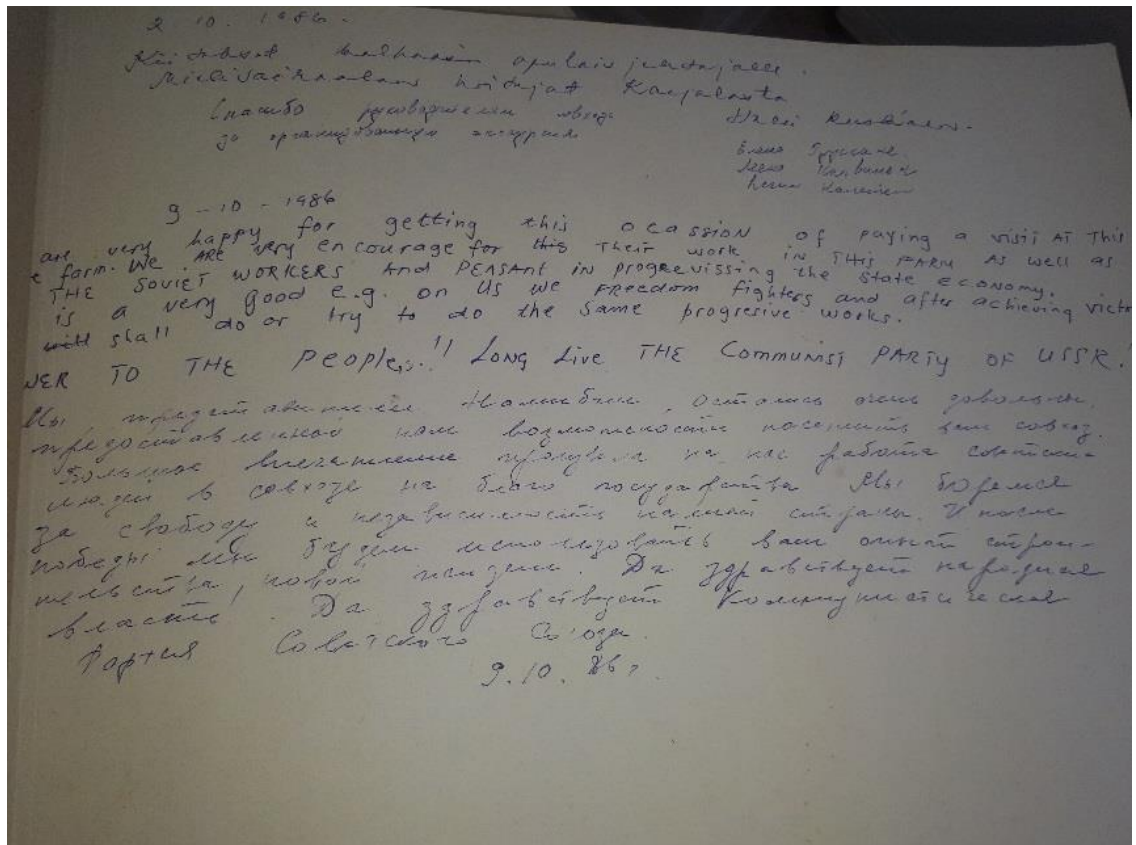 2. 10. 1986.
Kiitokset apulaisjohtajalle.
hoitajat Karjalasta
Спасибо руководителям совхоза
за организованную экскурсию
Елена
9-10-1986
are very happy for getting this ocassion of paying a visit AT This
e farm. We ARE very encourage for this Their work in THIS FARM As well as
THE SOVIET WORKERS And PEASAnt in progrevissing the State economy.
is a very good e.g. on Us we FREEdom fighters and after achieving victo
will shall do or try to do the same progresive works.
WER TO THE People..!! Long Live THE Communist PARTY OF USSR!
Мы представители Намибии, остались очень довольны,
предоставленной нам возможности посетить ваш совхоз.
Большое впечатление произвела на нас работа советских
людей в совхозе на благо государства Мы боремся
за свободу и независимость нашей страны. И после
победы мы будем использовать ваш опыт строи-
тельства, новой жизни. Да здравствует народная
власть! Да здравствует Коммунистическая
Партия Советского Союза.
9.10.86г